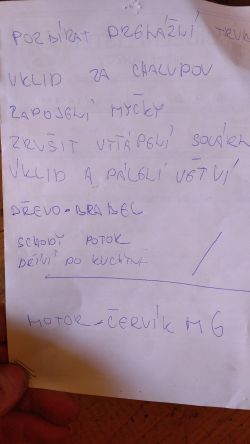 POZBÍRAT DRENÁŽNÍ TRUH
ÚKLID ZA CHALUPOU
ZAPOJENÍ MYČKY
ZRUŠIT VYTÁPĚNÍ SOLÁR
ÚKLID A PÁLENÍ VĚTVÍ
DŘEVO - BRABEC
SCHODY POTOK
DO KUCHYNĚ
MOTOR - ČERVÍK M6